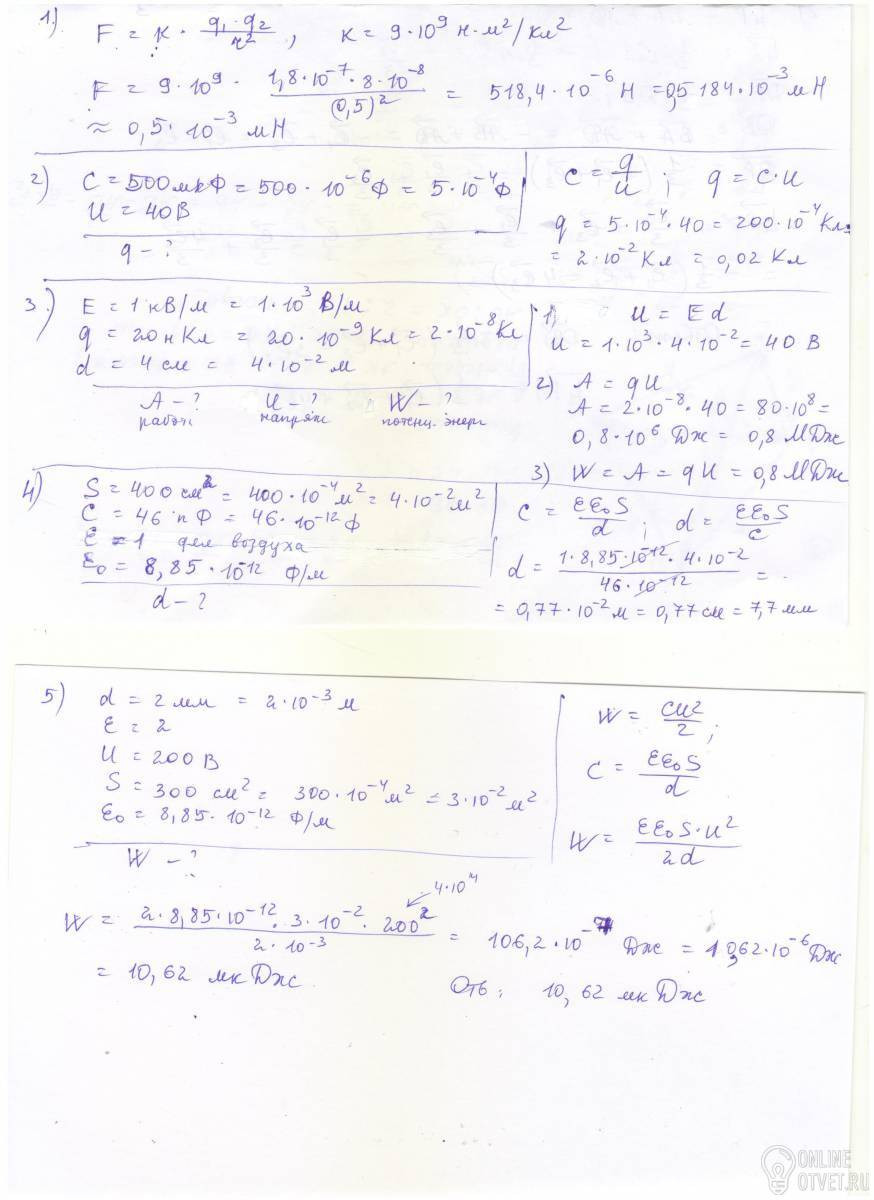 1.) F = K · q₁·q₂/r², K = 9·10⁹ Н·м²/Кл²
F = 9·10⁹ · 1,8·10⁻⁷·8·10⁻⁸/(0,5)² = 518,4·10⁻⁶ Н = 0,5184·10⁻³ мН
≈ 0,5·10⁻³ мН
2) C = 500 мкФ = 500·10⁻⁶ Ф = 5·10⁻⁴ Ф
U = 40 В
q – ?
C = q/U; q = C·U
q = 5·10⁻⁴·40 = 200·10⁻⁴ Кл =
= 2·10⁻² Кл = 0,02 Кл
3.) E = 1 кВ/м = 1·10³ В/м
q = 20 нКл = 20·10⁻⁹ Кл = 2·10⁻⁸ Кл
d = 4 см = 4·10⁻² м
A – ? U – ? W – ?
работ напряж потенц. энерг
1) U = Ed
U = 1·10³·4·10⁻² = 40 В
2) A = qU
A = 2·10⁻⁸·40 = 80·10⁸ =
0,8·10⁶ Дж = 0,8 МДж
3) W = A = qU = 0,8 МДж
4) S = 400 см² = 400·10⁻⁴ м² = 4·10⁻² м²
C = 46 пФ = 46·10⁻¹² Ф
ε = 1 для воздуха
ε₀ = 8,85·10⁻¹² Ф/м
d – ?
C = εε₀S/d; d = εε₀S/C
d = 1·8,85·10⁻¹²·4·10⁻²/46·10⁻¹² =
= 0,77·10⁻² м = 0,77 см = 7,7 мм
5) d = 2 мм = 2·10⁻³ м
ε = 2
U = 200 В
S = 300 см² = 300·10⁻⁴ м² = 3·10⁻² м²
ε₀ = 8,85·10⁻¹² Ф/м
W – ?
W = CU²/2;
C = εε₀S/d
W = εε₀S·U²/2d
4·10⁴
W = 2·8,85·10⁻¹²·3·10⁻²·200²/2·10⁻³ = 106,2·10⁻⁷ Дж = 1,062·10⁻⁶ Дж
= 10,62 мкДж
Отв: 10,62 мкДж
ONLINE
OTVET.RU